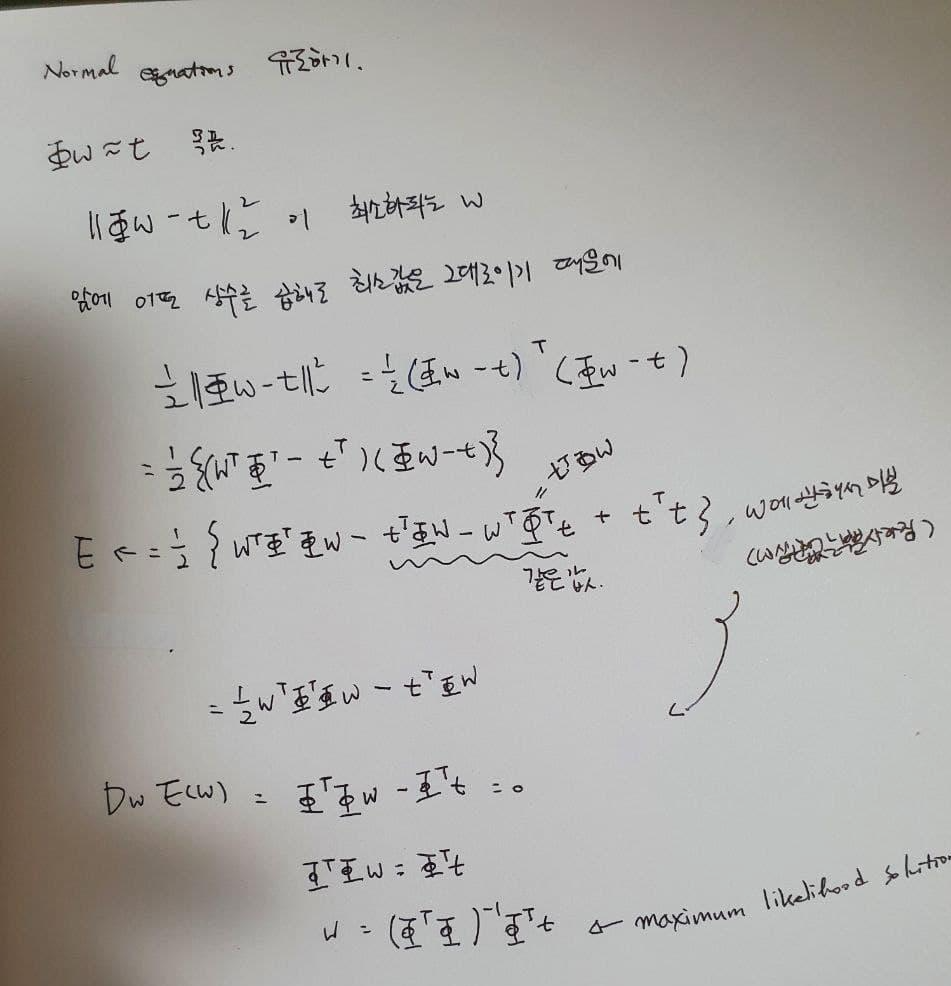 Normal equations 유도하기.
Φw ≈ t 목표.
||Φw - t||₂² 이 최소화되는 w
앞에 어떤 상수를 곱해도 최소값은 그대로이기 때문에
½||Φw - t||₂² = ½(Φw - t)ᵀ(Φw - t)
= ½{(wᵀΦᵀ - tᵀ)(Φw - t)}
tᵀΦw
E ← = ½{wᵀΦᵀΦw - tᵀΦw - wᵀΦᵀt + tᵀt}, w에 관해서 미분
같은 값. (w 상관없는 부분 사라짐)
= ½wᵀΦᵀΦw - tᵀΦw
Dw E(w) = ΦᵀΦw - Φᵀt = 0
ΦᵀΦw = Φᵀt
w = (ΦᵀΦ)⁻¹Φᵀt ← maximum likelihood solution